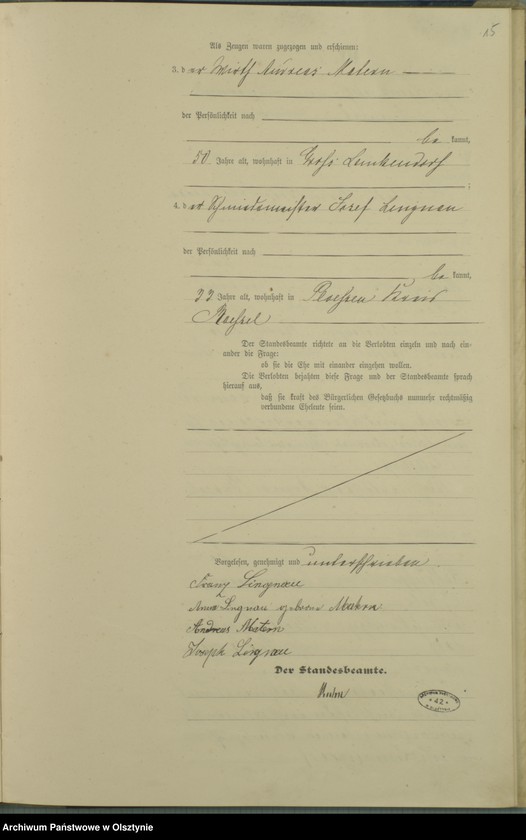 15
Als Zeugen waren zugezogen und erschienen:
3. der Wirth Andreas Matern
der Persönlichkeit nach
be kannt,
50 Jahre alt, wohnhaft in Groß Lemkendorf
;
4. der Schmiedemeister Josef Lingnau
der Persönlichkeit nach
be kannt,
33 Jahre alt, wohnhaft in Kreis
Roessel
Der Standesbeamte richtete an die Verlobten einzeln und nach ein-
ander die Frage:
ob sie die Ehe mit einander eingehen wollen.
Die Verlobten bejahten diese Frage und der Standesbeamte sprach
hierauf aus,
daß sie kraft des Bürgerlichen Gesetzbuchs nunmehr rechtmäßig
verbundene Eheleute seien.
Vorgelesen, genehmigt und unterschrieben
Franz Lingnau
Anna Lingnau geborene Matern
Andreas Matern
Joseph Lingnau
Der Standesbeamte.
* 42 *
Archiwum Państwowe w Olsztynie